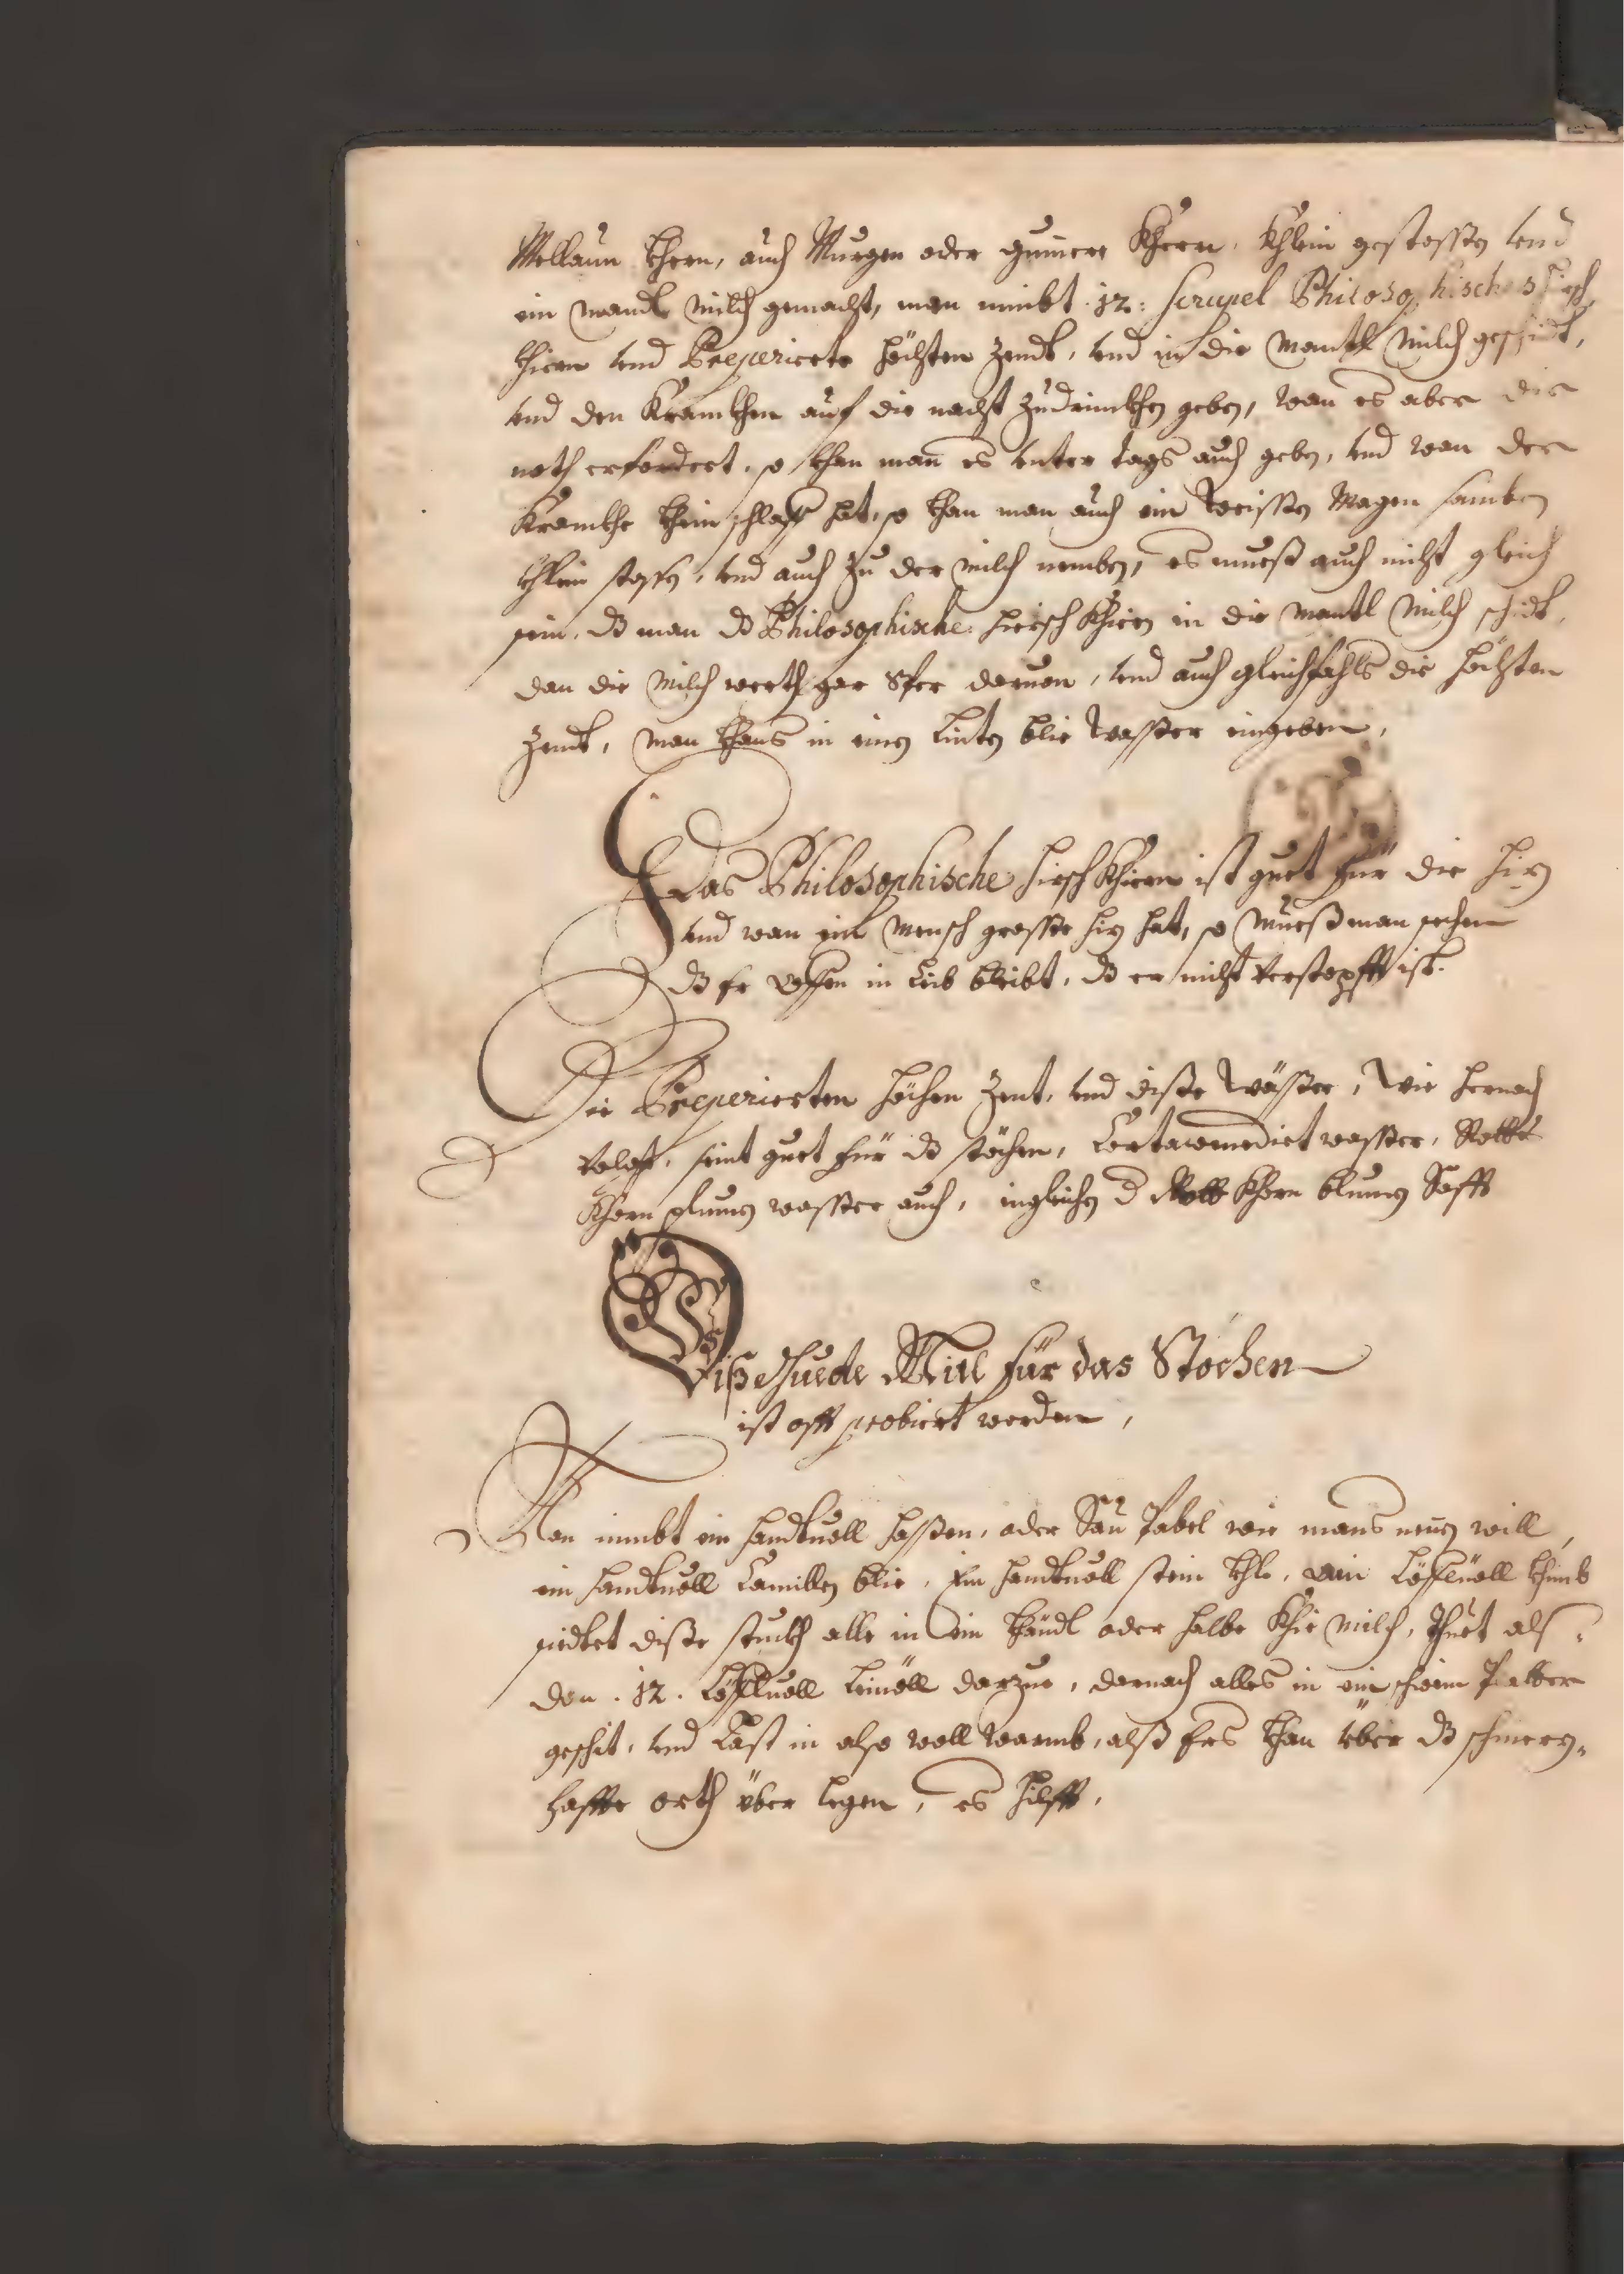 Mellaun khern, auch Murgen oder gumere Khern, khlein gestossen vnd
ein mandl milch gemacht, man nimbt .12. scrupel Philosophisches hirsch
hiern vnd Preperierte hechten zendt, vnd in die mantl milch geschidt,
vnd den Krankhen auf die nacht zudrinkhen geben, wan es aber die
noth erfordert, so khan man es vnter tags auch geben, vnd wan der
Krankhe khein schlaff hat, so khan man auch ein weissen Magen samben
khlein stossen, vnd auch zu der milch nemben, es mueß auch nicht gleich
sein, dß man dß Philosophische hiersch khiern in die mantl milch schidt,
dan die milch werth gar Sehr daruon, vnd auch gleichfahls die hechten
zendt, man khans in einen linten blie wasser eingeben,
Das Philosophische hirsch khiern ist guet für die hiz
vnd wan ein mensch grosse hiz hat, so mueß man sechen
dß er offen in leib bleibt, dß er nicht verstopfft ist.
Die Preperierten hechen zent, vnd diße wässer, wie hernach
volgt, seint guet für dß stöchen, Cartawendict wasser, Rotte
khorn plumen wasser auch, ingleichen d Rott khorn blumen Safft
Diß guede Mitl für das Stöchen
ist offt probiert worden,
Man nimbt ein handtuoll hassen, oder Sau Pabel wie mans nenen will,
ein handtuoll Camillen blie, Ein handtuoll stein khle, ein Löffluoll khimb
siedtet diße stuckh alle in ein Kändl oder halbe khie milch, thuet als=
dan .12. Löffluoll leinöll darzue, darnach alles in ein schwein Platter
geschit, vnd Last in also woll warmb, alß ers khan über dß schmerz=
haffte orth über legen, es hilfft,